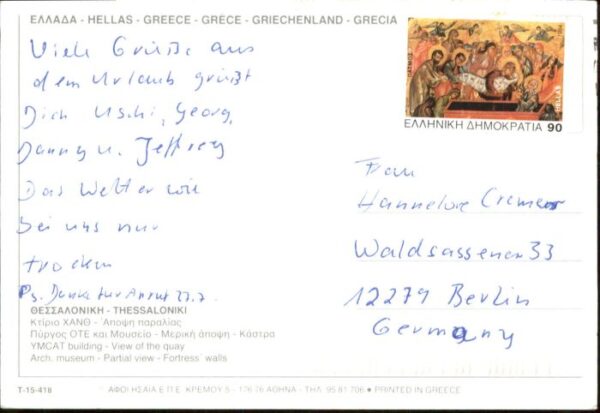 ΕΛΛΑΔΑ - HELLAS - GREECE - GRÈCE - GRIECHENLAND - GRECIA
Viele Grüße aus
dem Urlaub grüßt
Dich Uschi, Georg,
Danny u. Jeffrey
Das Wetter wie
bei uns nur
trocken
Ps. Danke für Anruf 27.7.
ΘΕΣΣΑΛΟΝΙΚΗ - THESSALONIKI
Κτίριο ΧΑΝΘ - Αποψη παραλίας
Πύργος ΟΤΕ και Μουσείο - Μερική άποψη - Κάστρα
YMCAT building - View of the quay
Arch. museum - Partial view - Fortress' walls
Τ-15-418
ΑΦΟΙ ΗΣΑΙΑ Ε.Π.Ε. ΚΡΕΜΟΥ 5 - 176 76 ΑΘΗΝΑ - ΤΗΛ. 95 81 706 ● PRINTED IN GREECE
HELLAS
ΕΛΛΗΝΙΚΗ ΔΗΜΟΚΡΑΤΙΑ 90
Frau
Hannelore Cremer
Waldsassener 33
12279 Berlin
Germany